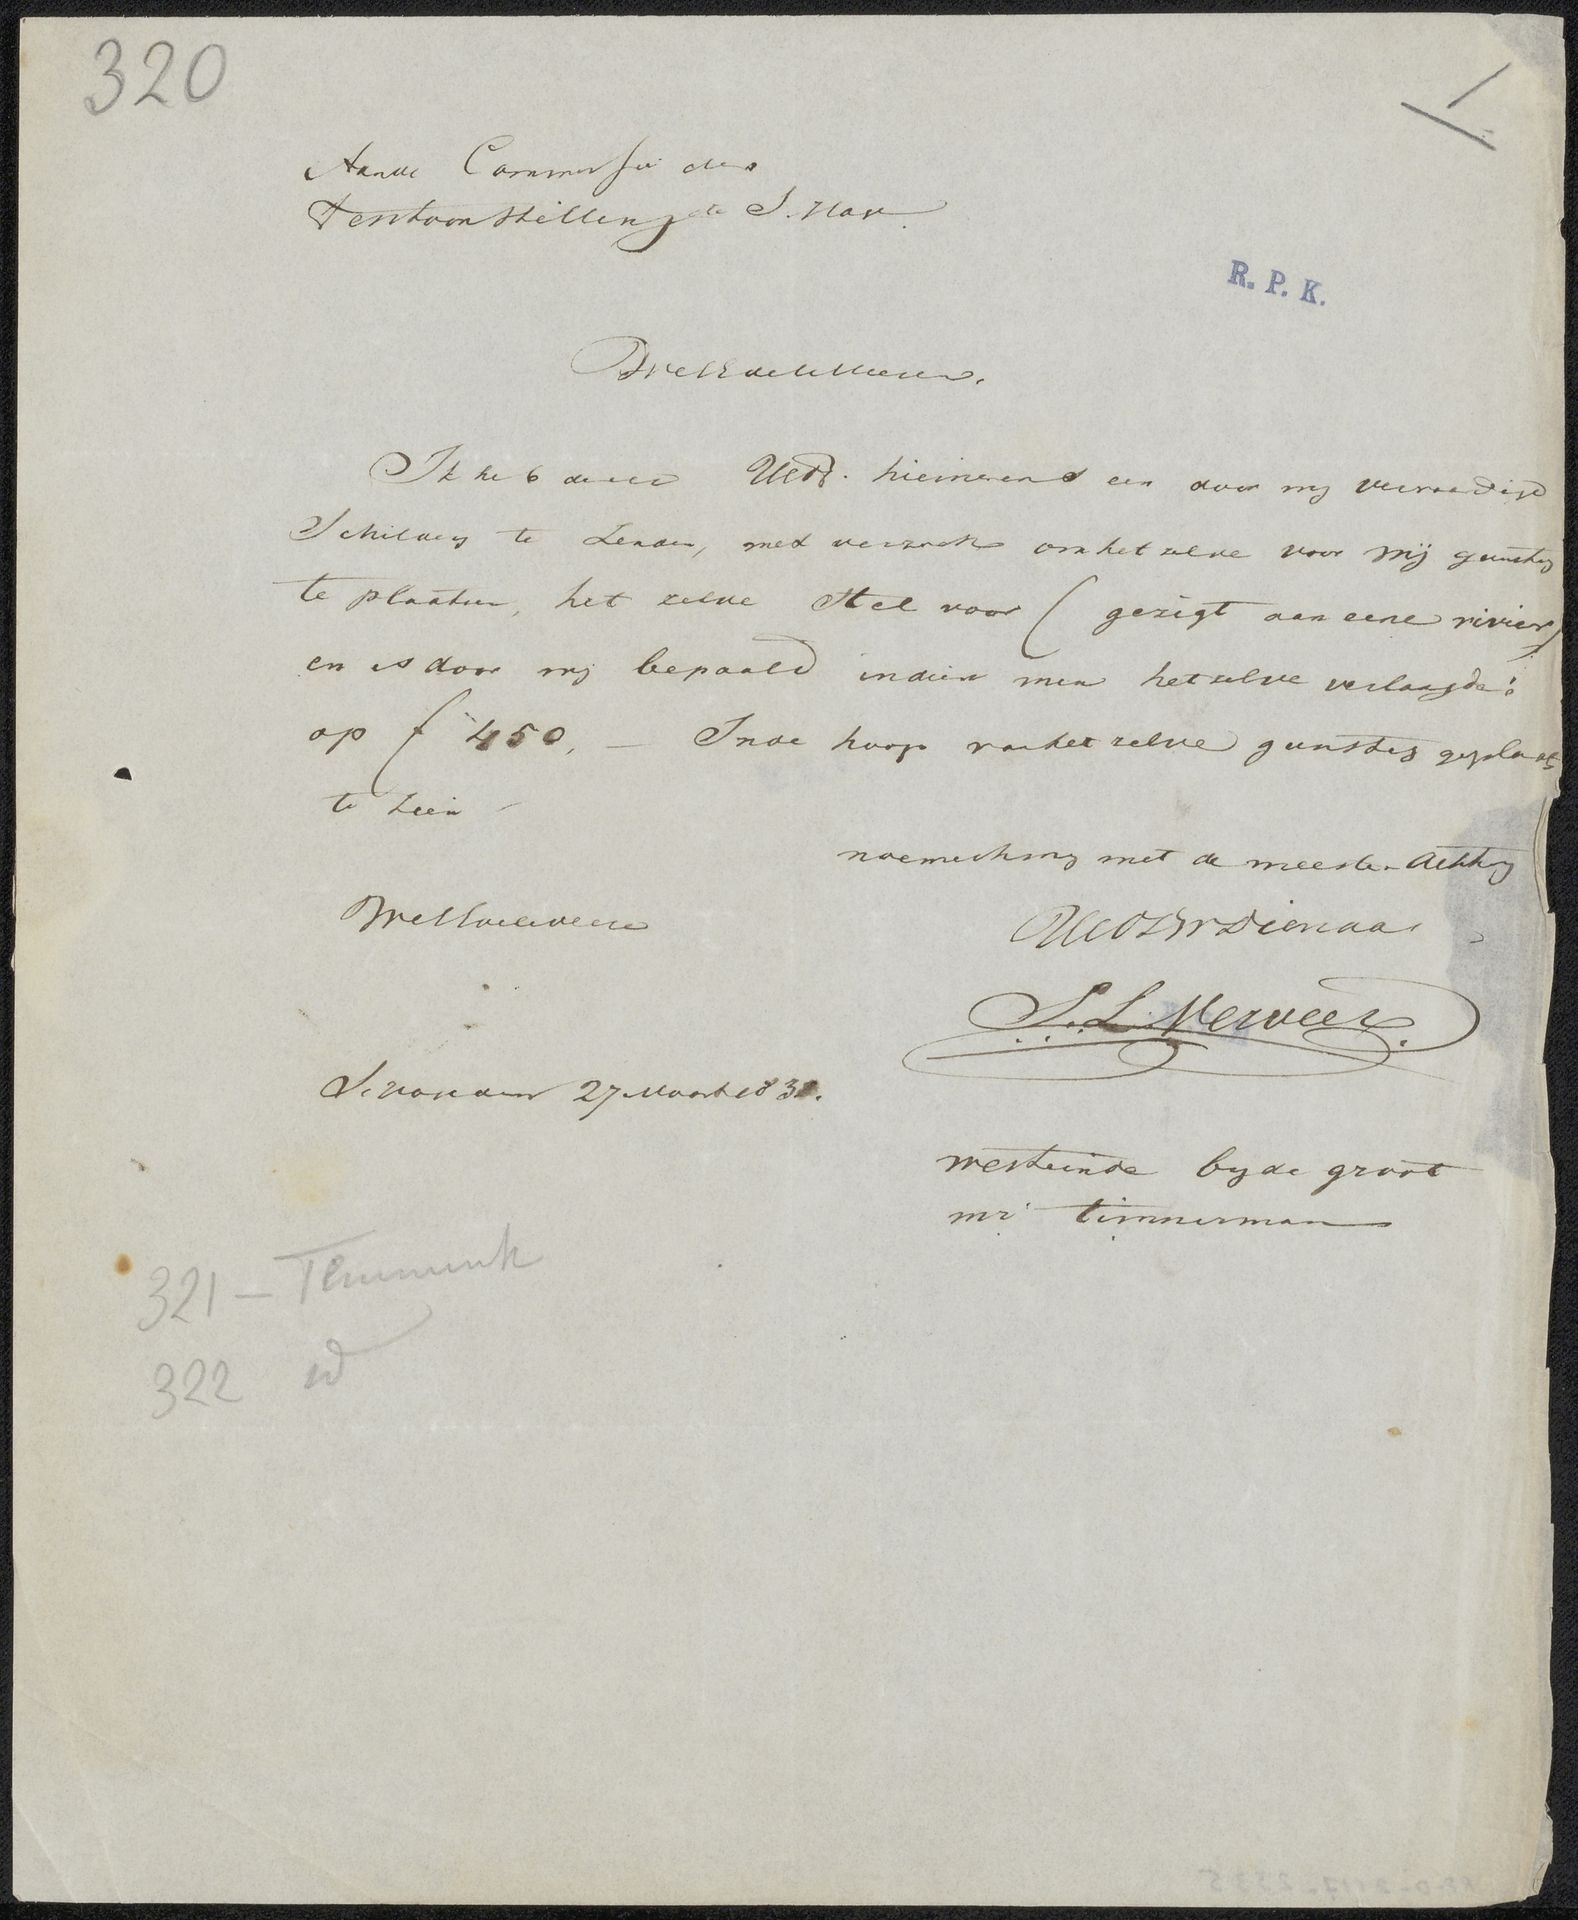 320
Aan de Commissie der
Tentoonstelling te S. Hage.
R. P. K.
WelEdele Heeren.
Ik heb de eer UEds. hiernevens een door mij vervaardigd
Schildery te Zenden, met verzoek om het zelve voor mij gunstig
te plaatsen, het zelve Stel voor ( gezigt aan eene rivier )
en is door mij bepaald indien men hetzelve verlangde:
op ƒ 450, — In de hoop van het zelve gunstig geplaatst
te zien
noeme ik mij met de meeste Achting
WelEdele Heeren
UEd DW Dienaar
S. L. Verveer
27 Maart 183
Westeinde by de groot
mr timmerman
321 – Temminck
322 id